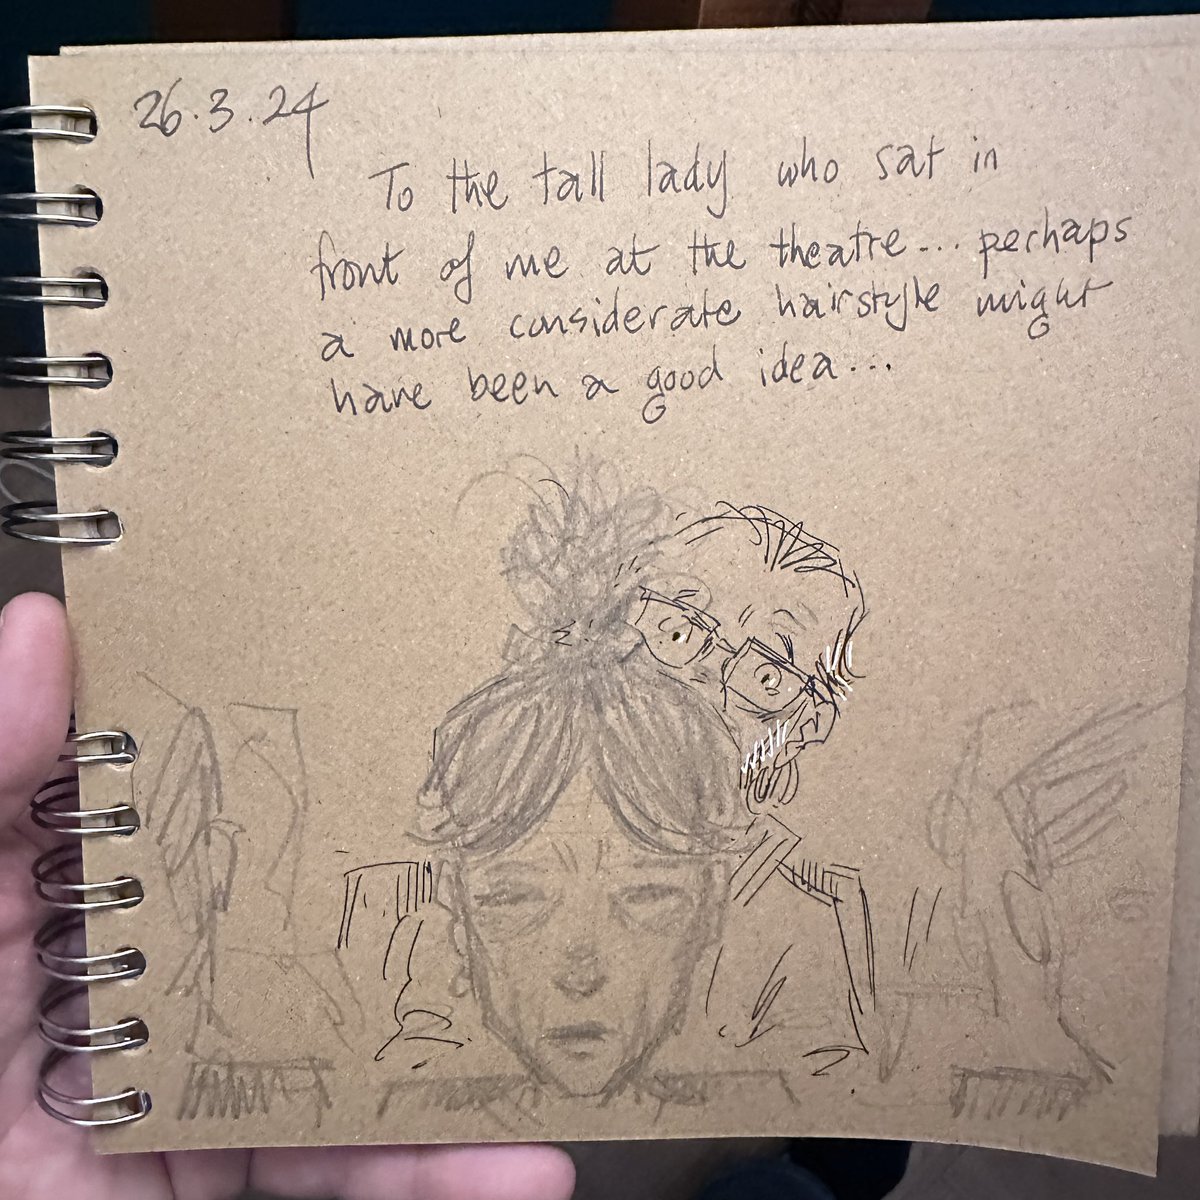 26.3.24
To the tall lady who sat in
front of me at the theatre... perhaps
a more considerate hairstyle might
have been a good idea...